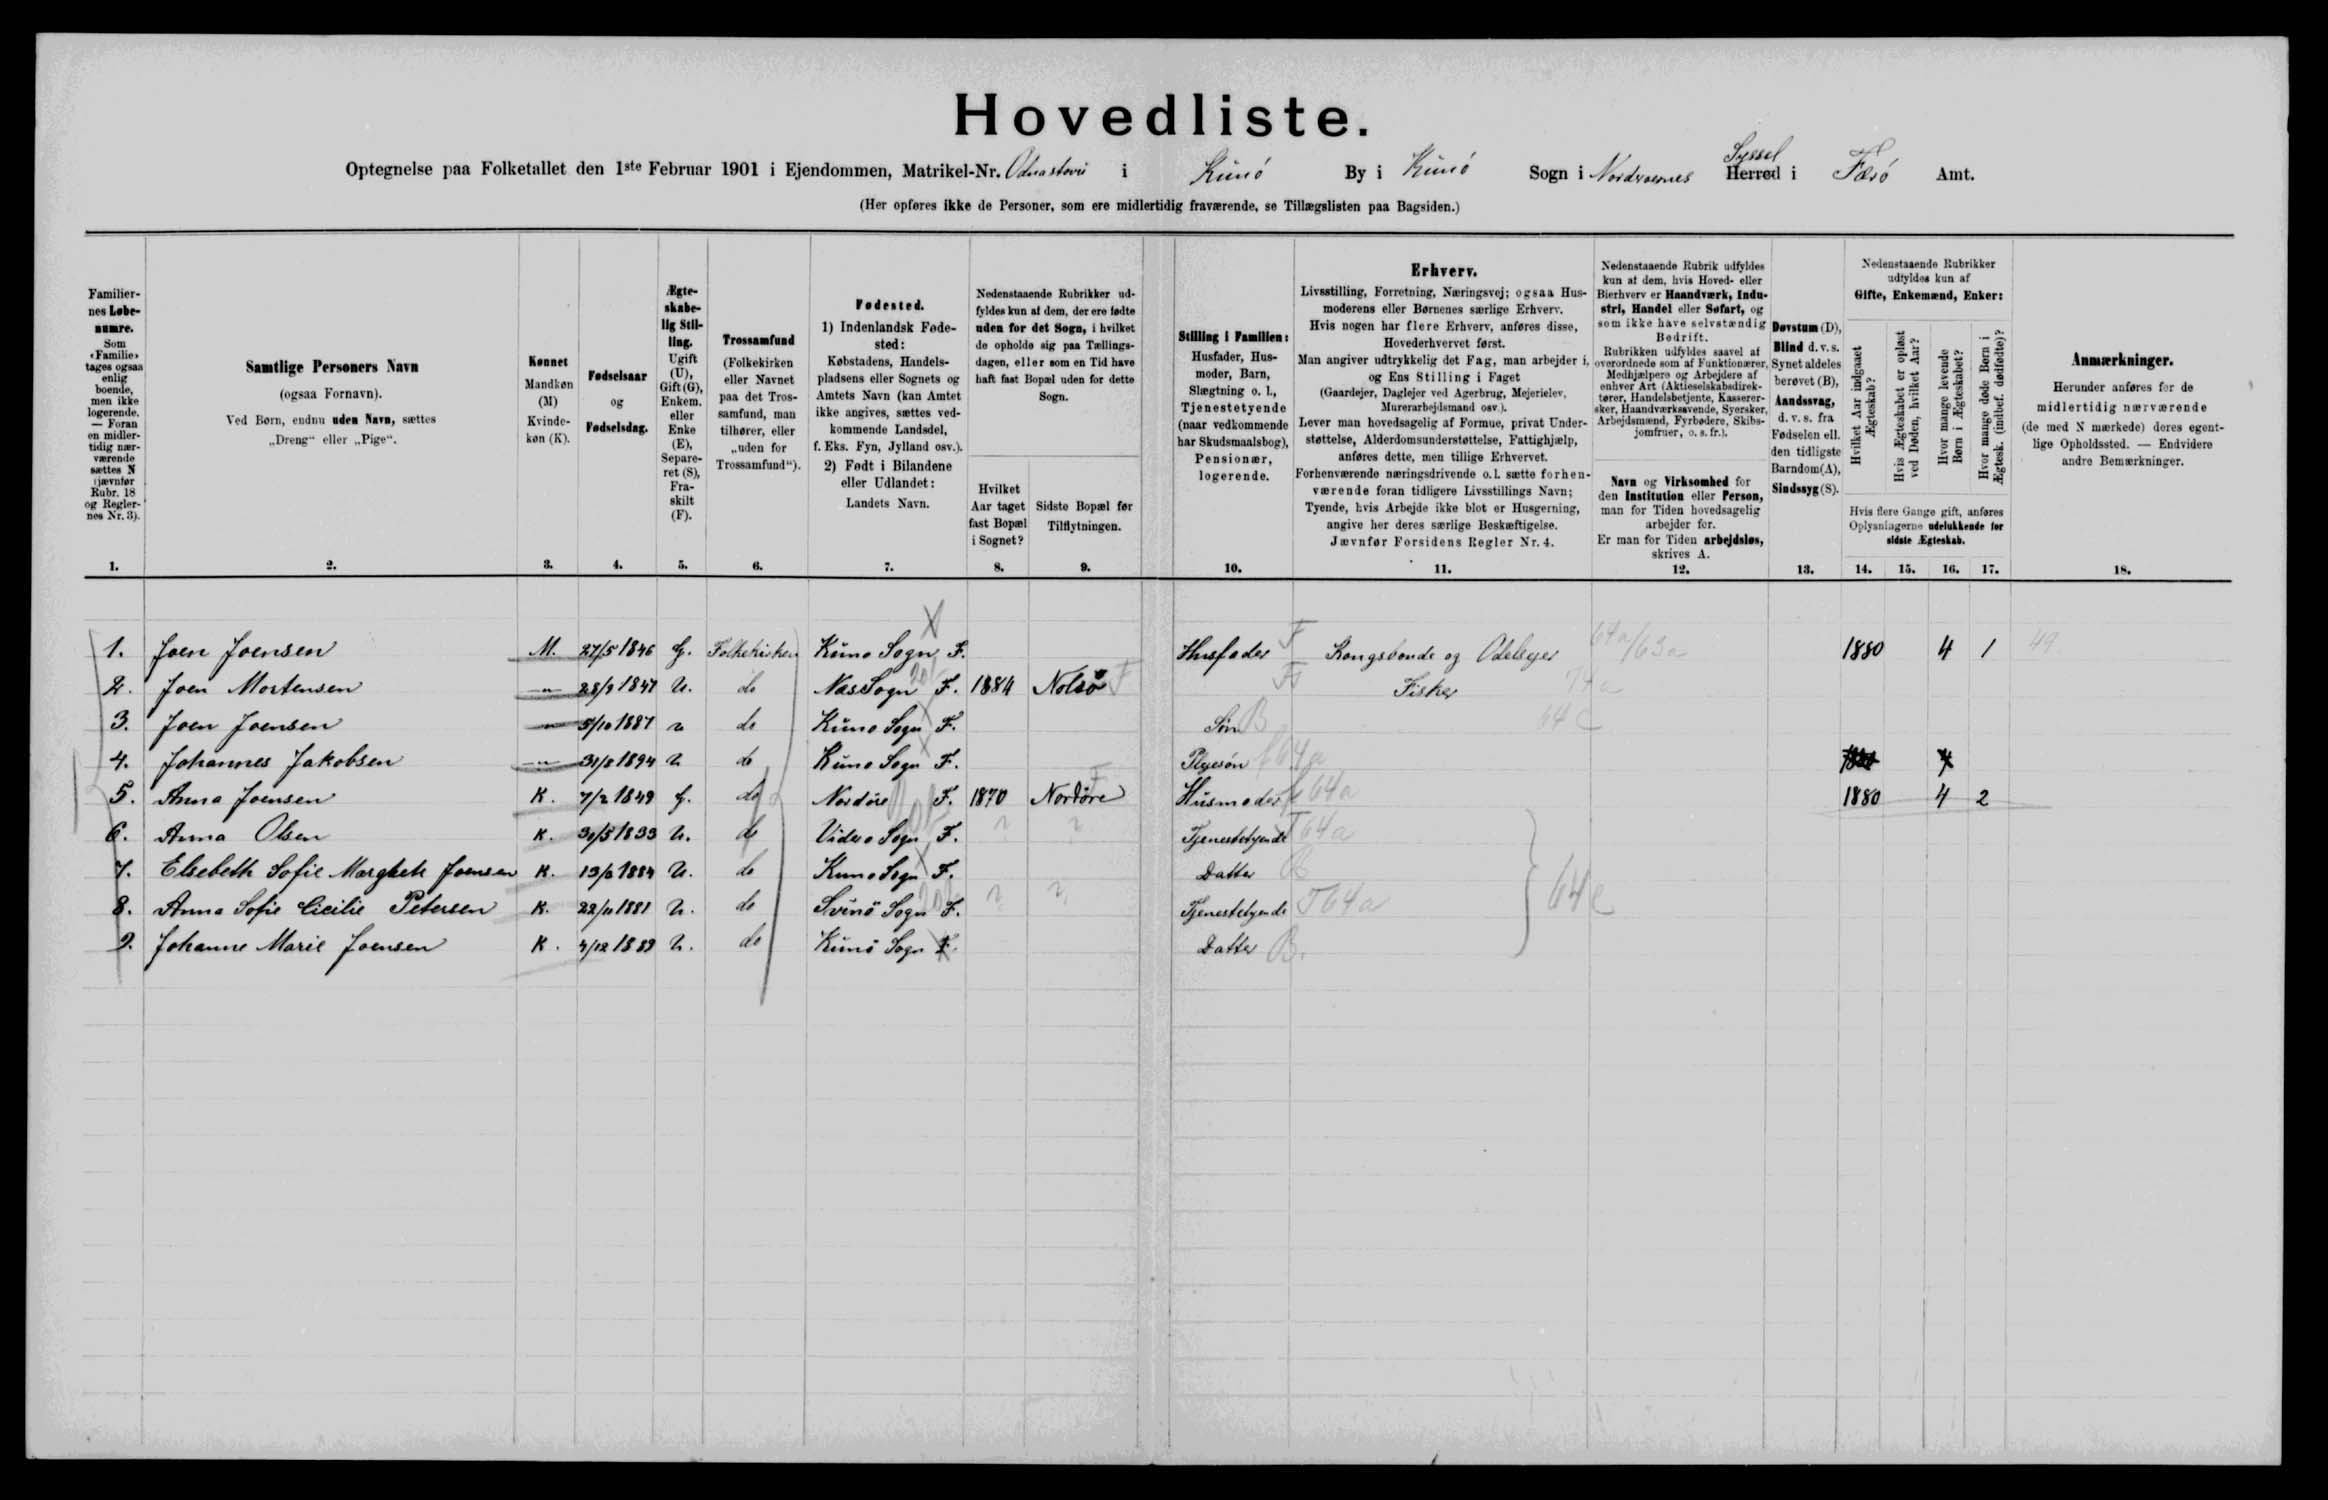 Hovedliste.
Syssel
Optegnelse paa Folketallet den 1ste Februar 1901 i Ejendommen, Matrikel-Nr. i Kunö By i Kunö Sogn i Nordroernes Herred i Færö Amt.
(Her opføres ikke de Personer, som ere midlertidig fraværende, se Tillægslisten paa Bagsiden.)
Familiernes Løbenumre. Som «Familie» tages ogsaa enlig boende, men ikke logerende. — Foran en midlertidig nærværende sættes N (jævnfør Rubr. 18 og Reglernes Nr. 3).
Samtlige Personers Navn
(ogsaa Fornavn).
Ved Børn, endnu uden Navn, sættes
„Dreng“ eller „Pige“.
Kønnet
Mandkøn (M)
Kvindekøn (K).
Fødselsaar
og
Fødselsdag.
Ægteskabelig Stilling.
Ugift (U), Gift (G), Enkem. eller Enke (E), Separeret (S), Fraskilt (F).
Trossamfund
(Folkekirken eller Navnet paa det Trossamfund, man tilhører, eller „uden for Trossamfund“).
Fødested.
1) Indenlandsk Fødested:
Købstadens, Handelspladsens eller Sognets og Amtets Navn (kan Amtet ikke angives, sættes vedkommende Landsdel, f. Eks. Fyn, Jylland osv.).
2) Født i Bilandene eller Udlandet:
Landets Navn.
Nedenstaaende Rubrikker udfyldes kun af dem, der ere fødte uden for det Sogn, i hvilket de opholde sig paa Tællingsdagen, eller som en Tid have haft fast Bopæl uden for dette Sogn.
Hvilket Aar taget fast Bopæl i Sognet?
Sidste Bopæl før Tilflytningen.
Stilling i Familien:
Husfader, Husmoder, Barn, Slægtning o. l., Tjenestetyende (naar vedkommende har Skudsmaalsbog), Pensionær, logerende.
Erhverv.
Livsstilling, Forretning, Næringsvej; ogsaa Husmoderens eller Børnenes særlige Erhverv.
Hvis nogen har flere Erhverv, anføres disse, Hovederhvervet først.
Man angiver udtrykkelig det Fag, man arbejder i, og Ens Stilling i Faget
(Gaardejer, Daglejer ved Agerbrug, Mejerielev, Murerarbejdsmand osv.).
Lever man hovedsagelig af Formue, privat Understøttelse, Alderdomsunderstøttelse, Fattighjælp, anføres dette, men tillige Erhvervet.
Forhenværende næringsdrivende o. l. sætte forhenværende foran tidligere Livsstillings Navn;
Tyende, hvis Arbejde ikke blot er Husgerning, angive her deres særlige Beskæftigelse.
Jævnfør Forsidens Regler Nr. 4.
Nedenstaaende Rubrik udfyldes kun af dem, hvis Hoved- eller Bierhverv er Haandværk, Industri, Handel eller Søfart, og som ikke have selvstændig Bedrift.
Rubrikken udfyldes saavel af overordnede som af Funktionærer, Medhjælpere og Arbejdere af enhver Art (Aktieselskabsdirektører, Handelsbetjente, Kasserersker, Haandværkssvende, Syersker, Arbejdsmænd, Fyrbødere, Skibsjomfruer, o. s. fr.).
Navn og Virksomhed for den Institution eller Person, man for Tiden hovedsagelig arbejder for.
Er man for Tiden arbejdsløs, skrives A.
Døvstum (D), Blind d. v. s. Synet aldeles berøvet (B), Aandssvag, d. v. s. fra Fødselen ell. den tidligste Barndom (A), Sindssyg (S).
Nedenstaaende Rubrikker udfyldes kun af
Gifte, Enkemænd, Enker:
Hvilket Aar indgaaet Ægteskab?
Hvis Ægteskabet er opløst ved Døden, hvilket Aar?
Hvor mange levende Børn i Ægteskabet?
Hvor mange døde Børn i Ægtesk. (indbef. dødfødte)?
Hvis flere Gange gift, anføres Oplysningerne udelukkende for sidste Ægteskab.
Anmærkninger.
Herunder anføres for de midlertidig nærværende (de med N mærkede) deres egentlige Opholdssted. — Endvidere andre Bemærkninger.
1. 2. 3. 4. 5. 6. 7. 8. 9. 10. 11. 12. 13. 14. 15. 16. 17. 18.
1. Joen Joensen M. 27/5 1846 G. Folkekirken Kuno Sogn F. Husfader F Kongsbonde og Odelsejer 64a/63a 1880 4 1 49
2. Joen Mortensen -"- 28/9 1847 U. do Næs Sogn F. 1884 Nolsö F Fisker 74a
3. Joen Joensen -"- 5/10 1887 u do Kuno Sogn F. Sön B 64 C
4. Johannes Jakobsen -"- 31/8 1894 U do Kuno Sogn F. Plejesön 64a
5. Anna Joensen K. 7/2 1849 G. do Nordöre F. 1870 Nordöre Husmoder 64a 1880 4 2
6. Anna Olsen K. 30/5 1833 U. do Videro Sogn F. ? ? Tjenestetyende T 64a
7. Elsebeth Sofie Margrete Joensen K. 13/6 1884 U. do Kuno Sogn F. Datter B
8. Anna Sofie Cicilie Petersen K. 22/11 1881 U. do Svinö Sogn F. ? ? Tjenestetyende T 64a 64 C
9. Johanne Marie Joensen K. 4/12 1889 U. do Kunö Sogn F. Datter B.